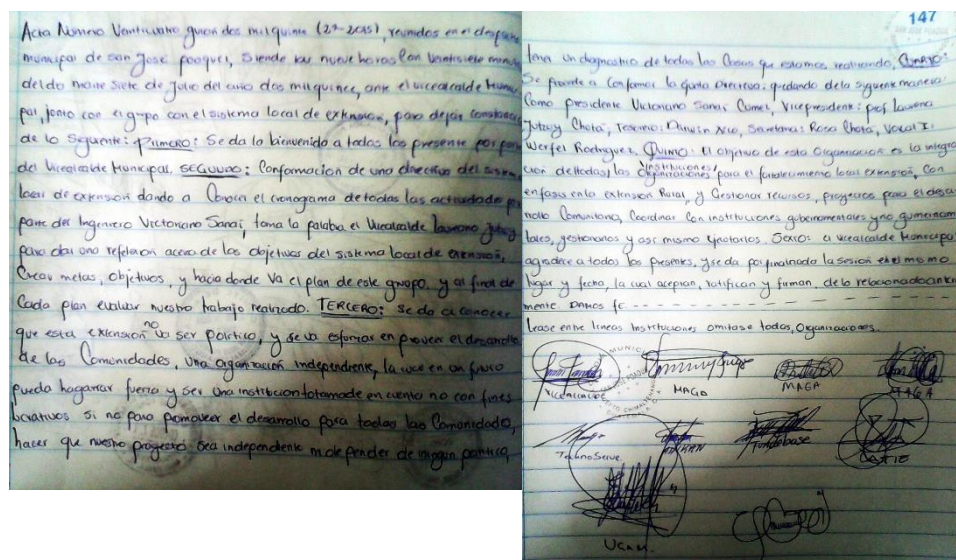 Acta Número Veinticuatro guion dos mil quince (24-2015), reunidos en el despacho
municipal de san José poaquil, siendo las nueve horas con veintisiete minutos
del día martes siete de Julio del año dos mil quince, ante el vicealcalde Munici
pal, junto con el grupo con el sistema local de extension, para dejar constancia
de lo siguiente: PRIMERO: Se da la bienvenida a todos los presente por parte
del Vicealcalde Municipal. SEGUNDO: Conformacion de una directiva del sistema
local de extension dando a Conocer el cronograma de todas las actividades por
parte del Ingeniero Victoriano Sanai, toma la palaba el Vicealcalde
para dar una reflexion acerca de los objetivos del sistema local de extensión,
Crear metas, objetivos, y hacia donde va el plan de este grupo, y al final de
Cada plan evaluar nuestro trabajo realizado. TERCERO: se da a conocer
que esta extensión no va ser politico, y se va esforzar en proveer el desarrollo
de las Comunidades, una organización independiente, la cual en un futuro
pueda hagarrar fuerza y ser una institucion tomado en cuenta no con fines
lucrativos si no para promover el desarrollo para todas las Comunidades,
hacer que nuestro proyecto sea independiente no depender de ningun partido,
147
tener un diagnostico de todas las Cosas que estamos realizando, CUARTO:
Se procede a Conformar la junta Directiva: quedando de la siguiente manera:
Como presidente Victoriano Sanai Cumel, Vicepresidente: prof,
Chota, Tesorero: Darwin Xico, Secretaria: Rosa Chota, Vocal I:
Werfel Rodriguez, QUINTO: El objetivo de esta Organización es la integra
ción de todas, las organizaciones, instituciones, para el fortalecimiento local extensión, con
enfasis en la extensión Rural, y Gestionar recursos, proyectos para el desa
rrollo Comunitario, Coordinar Con instituciones gubernamentales y no gubernamen
tales, gestionarlos y asi mismo ejecutarlos. SEXTO: el vicealcalde Municipal
agradece a todos los presentes, y se da por finalizado la sesión en el mismo
lugar y fecha, la cual aceptan, ratifican y firman, de lo relacionado anterior
mente. DAMOS fe
Lease entre lineas Instituciones omitase todas, Organizaciones.
VICEALCALDE MAGA MAGA MAGA
TechnoServe
UCAM.